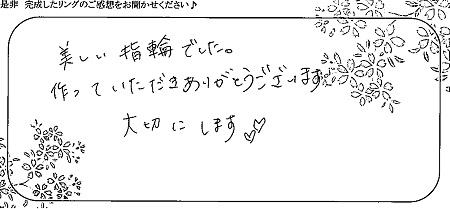 是非 完成したリングのご感想をお聞かせください♪
美しい指輪でした。
作っていただきありがとうございます
大切にします♡♡